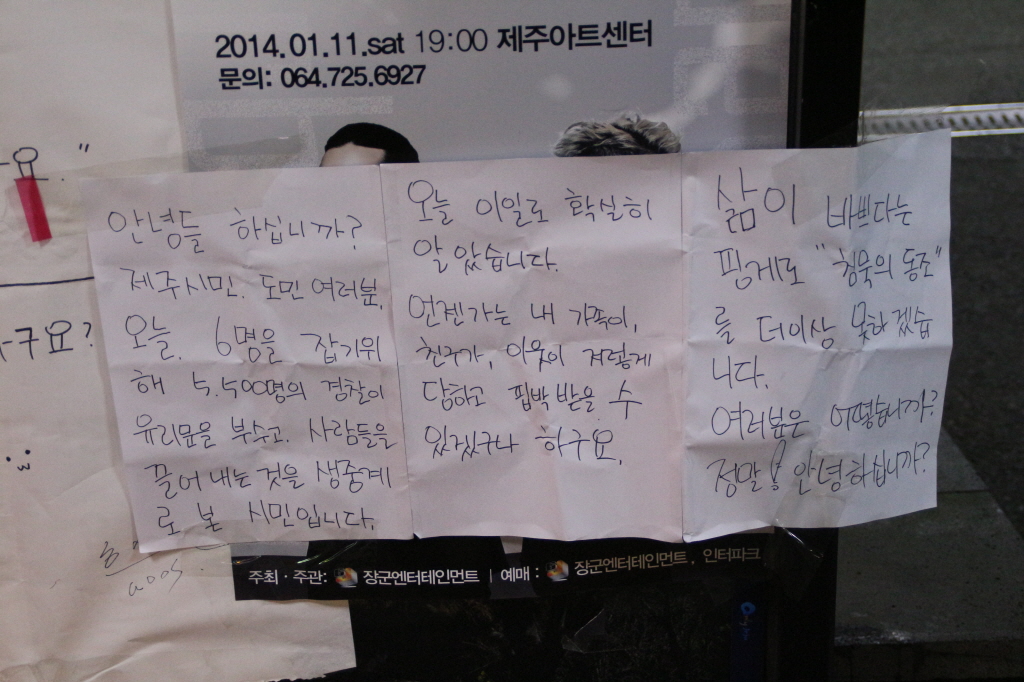 2014.01.11.sat 19:00 제주아트센터
문의: 064.725.6927
요."
구요?
안녕들 하십니까?
제주시민. 도민 여러분,
오늘, 6명을 잡기위
해 5,500명의 경찰이
유리문을 부수고, 사람들을
끌어 내는 것을 생중계
로 본 시민입니다.
오늘 이일로 확실히
알 았습니다.
언젠가는 내 가족이,
친구가, 이웃이 저렇게
당하고 핍박 받을 수
있겠구나 하구요.
삶이 바쁘다는
핑계로 "침묵의 동조"
를 더이상 못하겠습
니다.
여러분은 어떻습니까?
정말! 안녕하십니까?
주최·주관: 장군엔터테인먼트 | 예매: 장군엔터테인먼트, 인터파크